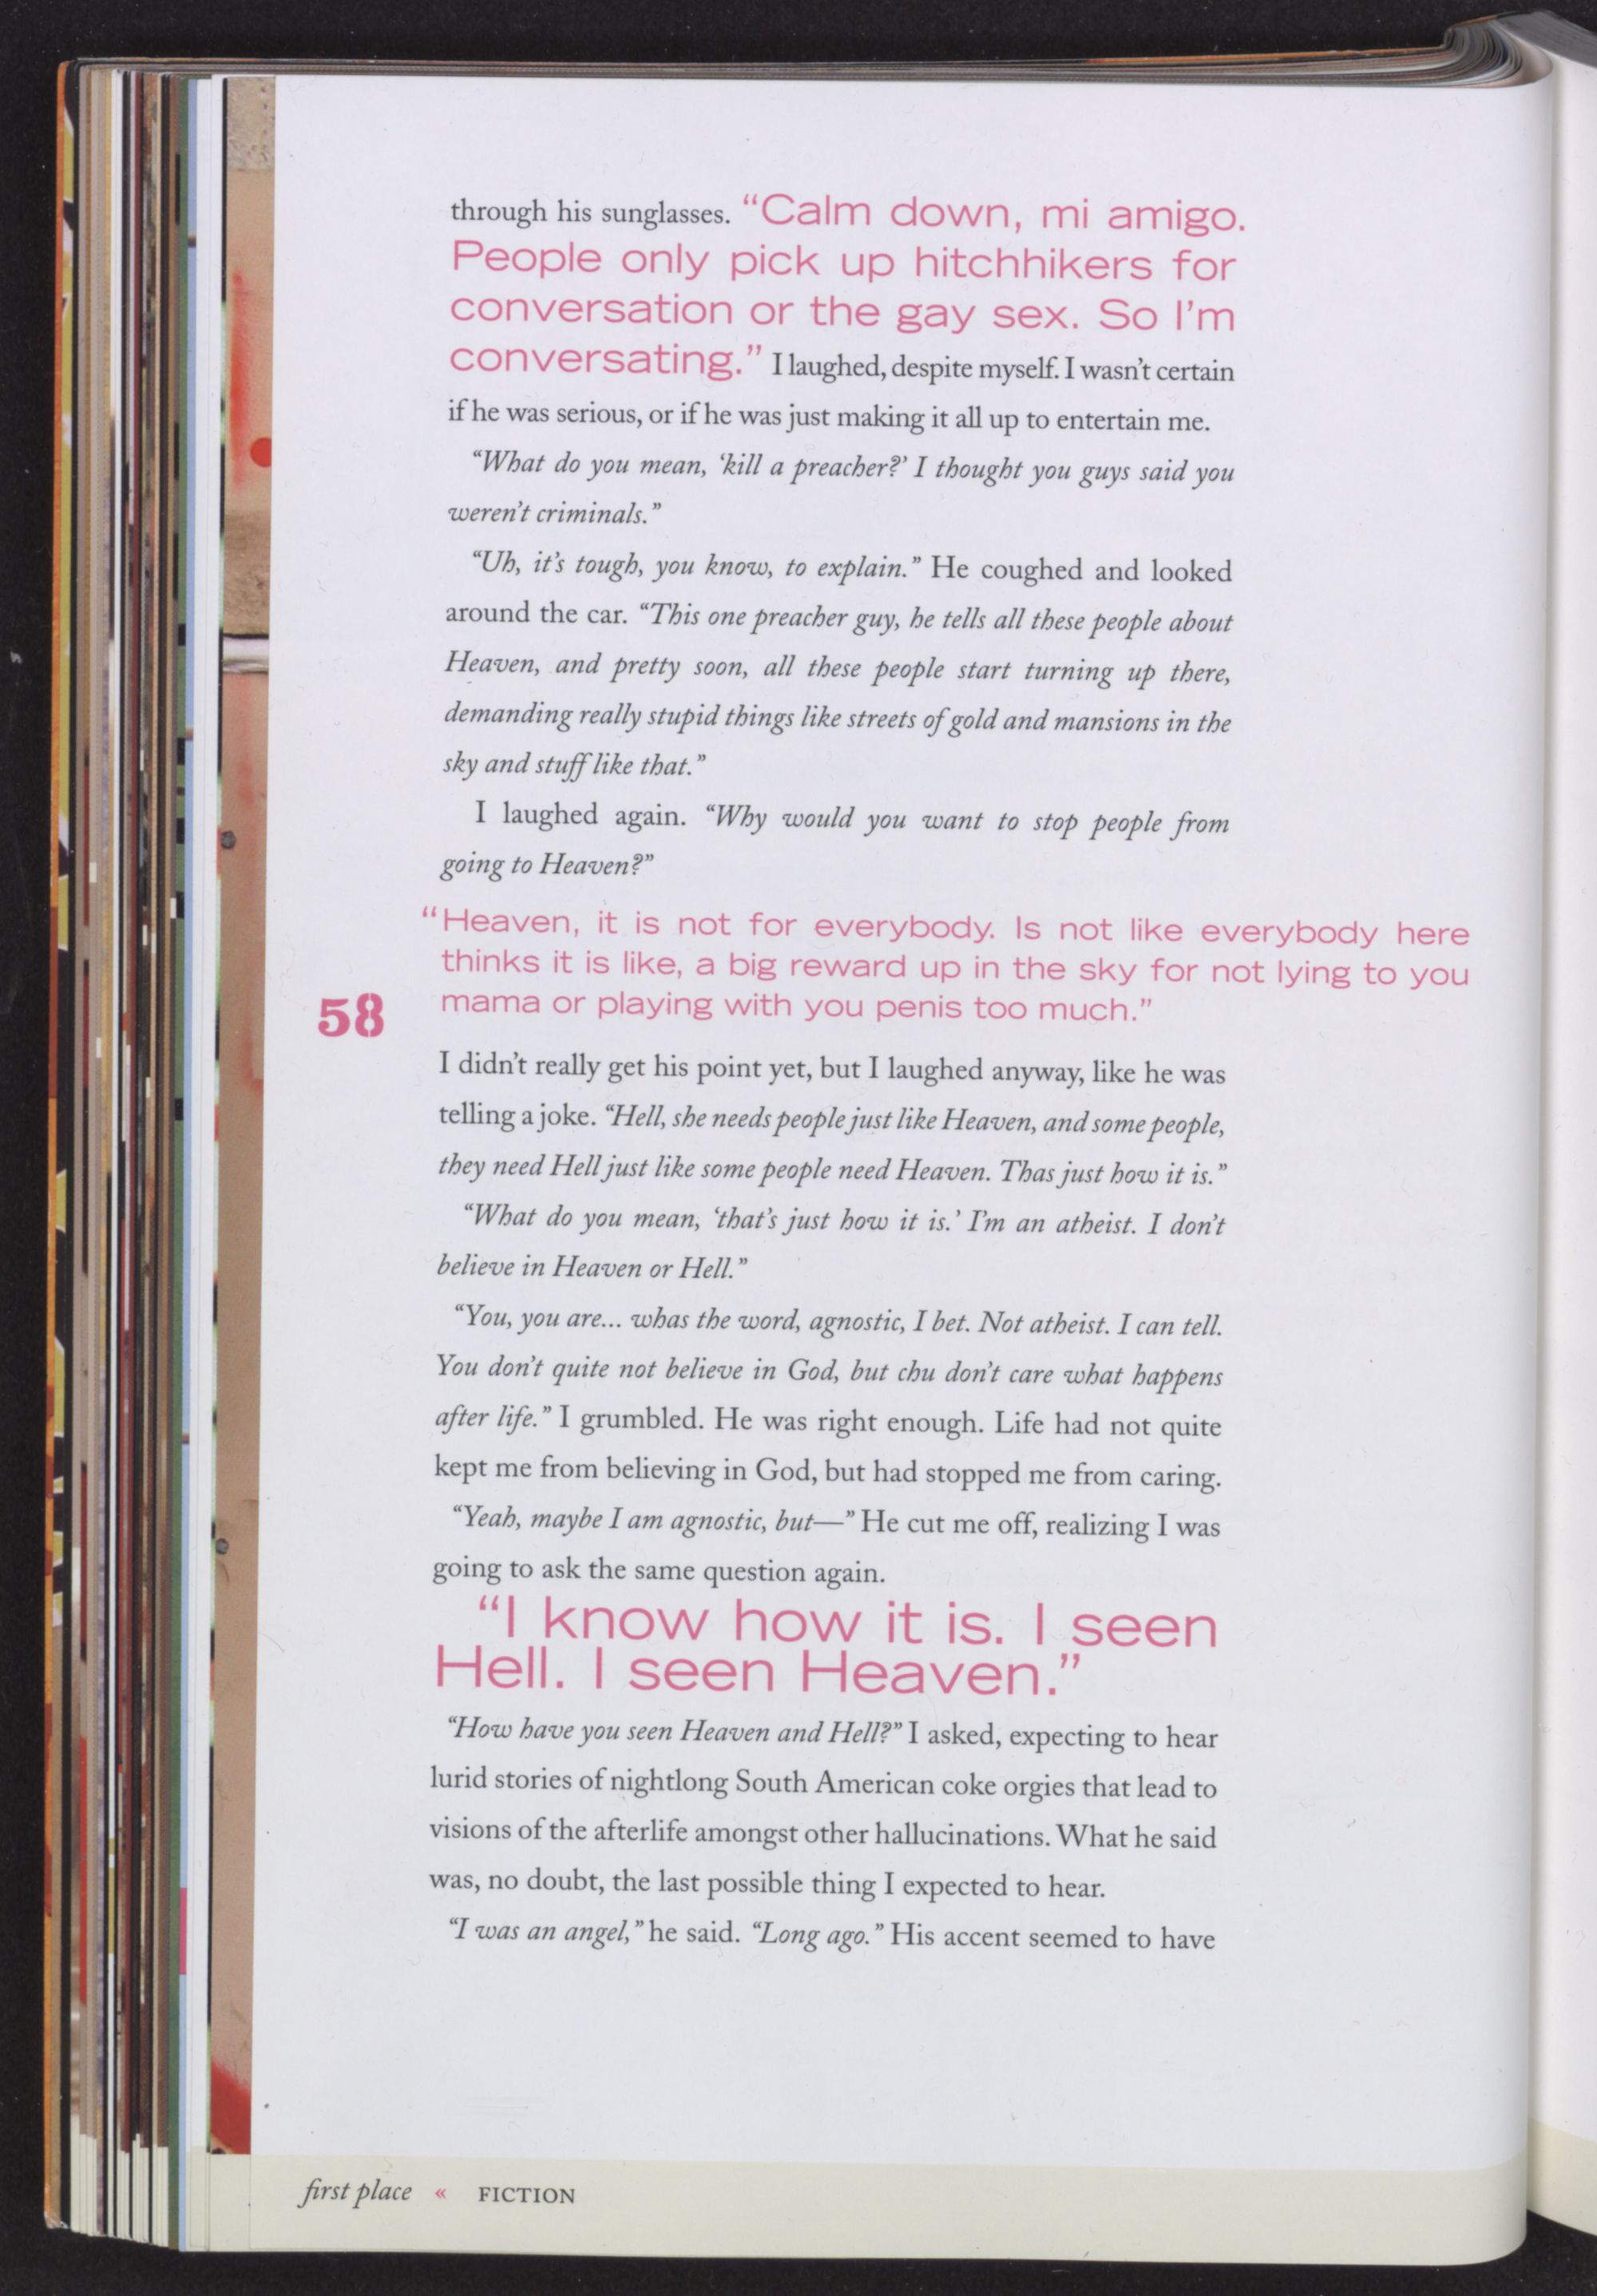 through his sunglasses. “Calm down, mi amigo.
People only pick up hitchhikers for
conversation or the gay sex. So I’m
conversating.” I laughed, despite myself. I wasn’t certain
if he was serious, or if he was just making it all up to entertain me.
“What do you mean, ‘kill a preacher?’ I thought you guys said you
weren’t criminals.”
“Uh, it’s tough, you know, to explain.” He coughed and looked
around the car. “This one preacher guy, he tells all these people about
Heaven, and pretty soon, all these people start turning up there,
demanding really stupid things like streets of gold and mansions in the
sky and stuff like that.”
I laughed again. “Why would you want to stop people from
going to Heaven?”
“Heaven, it is not for everybody. Is not like everybody here
thinks it is like, a big reward up in the sky for not lying to you
mama or playing with you penis too much.”
58
I didn’t really get his point yet, but I laughed anyway, like he was
telling a joke. “Hell, she needs people just like Heaven, and some people,
they need Hell just like some people need Heaven. Thas just how it is.”
“What do you mean, ‘that’s just how it is.’ I’m an atheist. I don’t
believe in Heaven or Hell.”
“You, you are... whas the word, agnostic, I bet. Not atheist. I can tell.
You don’t quite not believe in God, but chu don’t care what happens
after life.” I grumbled. He was right enough. Life had not quite
kept me from believing in God, but had stopped me from caring.
“Yeah, maybe I am agnostic, but—” He cut me off, realizing I was
going to ask the same question again.
“I know how it is. I seen
Hell. I seen Heaven.”
“How have you seen Heaven and Hell?” I asked, expecting to hear
lurid stories of nightlong South American coke orgies that lead to
visions of the afterlife amongst other hallucinations. What he said
was, no doubt, the last possible thing I expected to hear.
“I was an angel,” he said. “Long ago.” His accent seemed to have
first place « FICTION